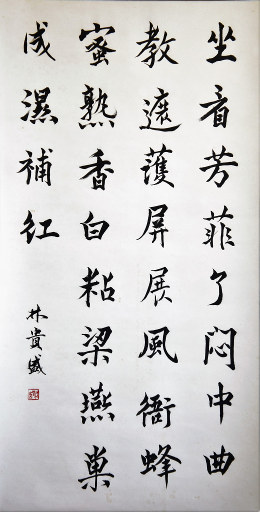 坐看芳菲了悶中曲
教遮護屏展風衙蜂
蜜熟香白粘梁燕巢
成濕補紅
林貴盛